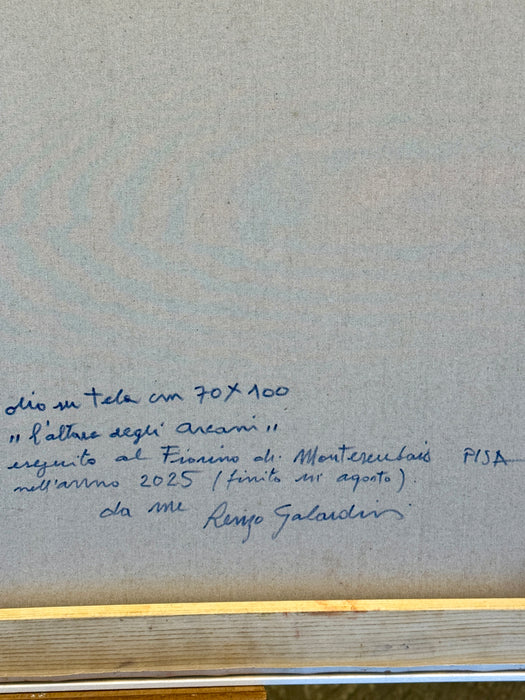 olio su tela cm 70X100
"l'altare degli arcani"
eseguito al Fiorino di Montescudaio PISA
nell'anno 2025 (finito in agosto).
da me Renzo Galardini